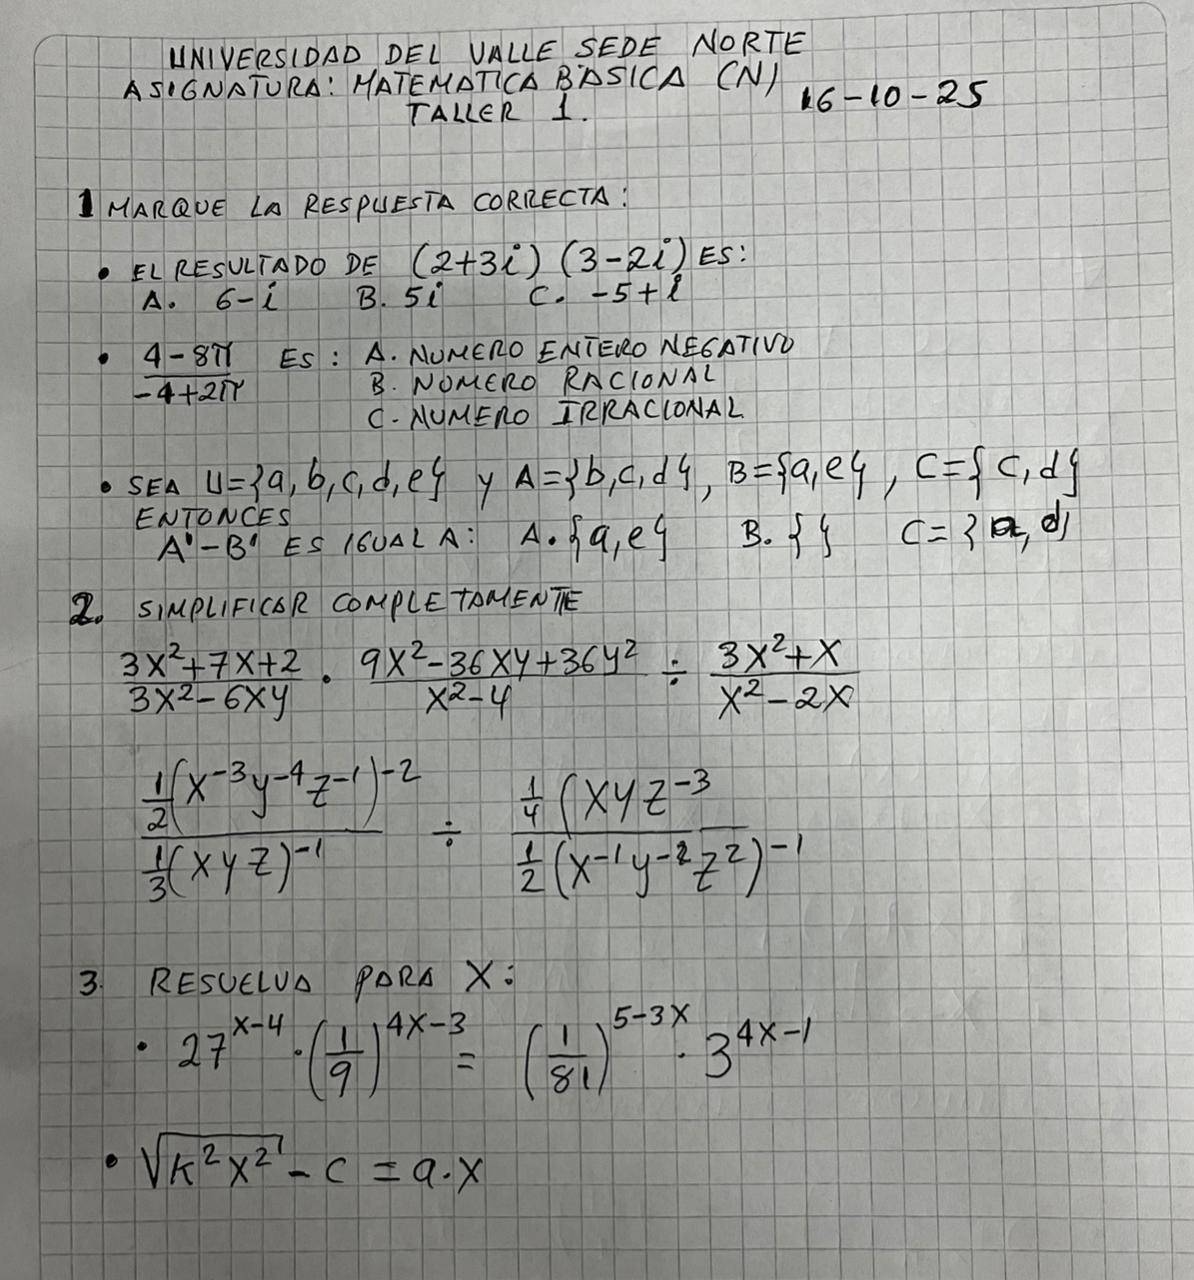 UNIVERSIDAD DEL VALLE SEDE NORTE
ASIGNATURA: MATEMATICA BASICA (N) 16-10-25
TALLER 1.
1 MARQUE LA RESPUESTA CORRECTA:
• EL RESULTADO DE (2+3i) (3-2i) ES:
A. 6-i B. 5i C. -5+i
• (4-8π)/(-4+2π) ES: A. NUMERO ENTERO NEGATIVO
B. NUMERO RACIONAL
C. NUMERO IRRACIONAL
• SEA U={a,b,c,d,e} y A={b,c,d}, B={a,e}, C={c,d}
ENTONCES
A'-B' ES IGUAL A: A. {a,e} B. { } C={a,d}
2. SIMPLIFICAR COMPLETAMENTE
(3x²+7x+2)/(3x²-6xy) · (9x²-36xy+36y²)/(x²-4) ÷ (3x²+x)/(x²-2x)
½(x⁻³y⁻⁴z⁻¹)⁻² / ⅓(xyz)⁻¹ ÷ ¼(xyz⁻³ / ½(x⁻¹y⁻²z²)⁻¹
3. RESUELVA PARA X:
• 27^(x-4) · (1/9)^(4x-3) = (1/81)^(5-3x) · 3^(4x-1)
• √(k²x²) - c = a·x